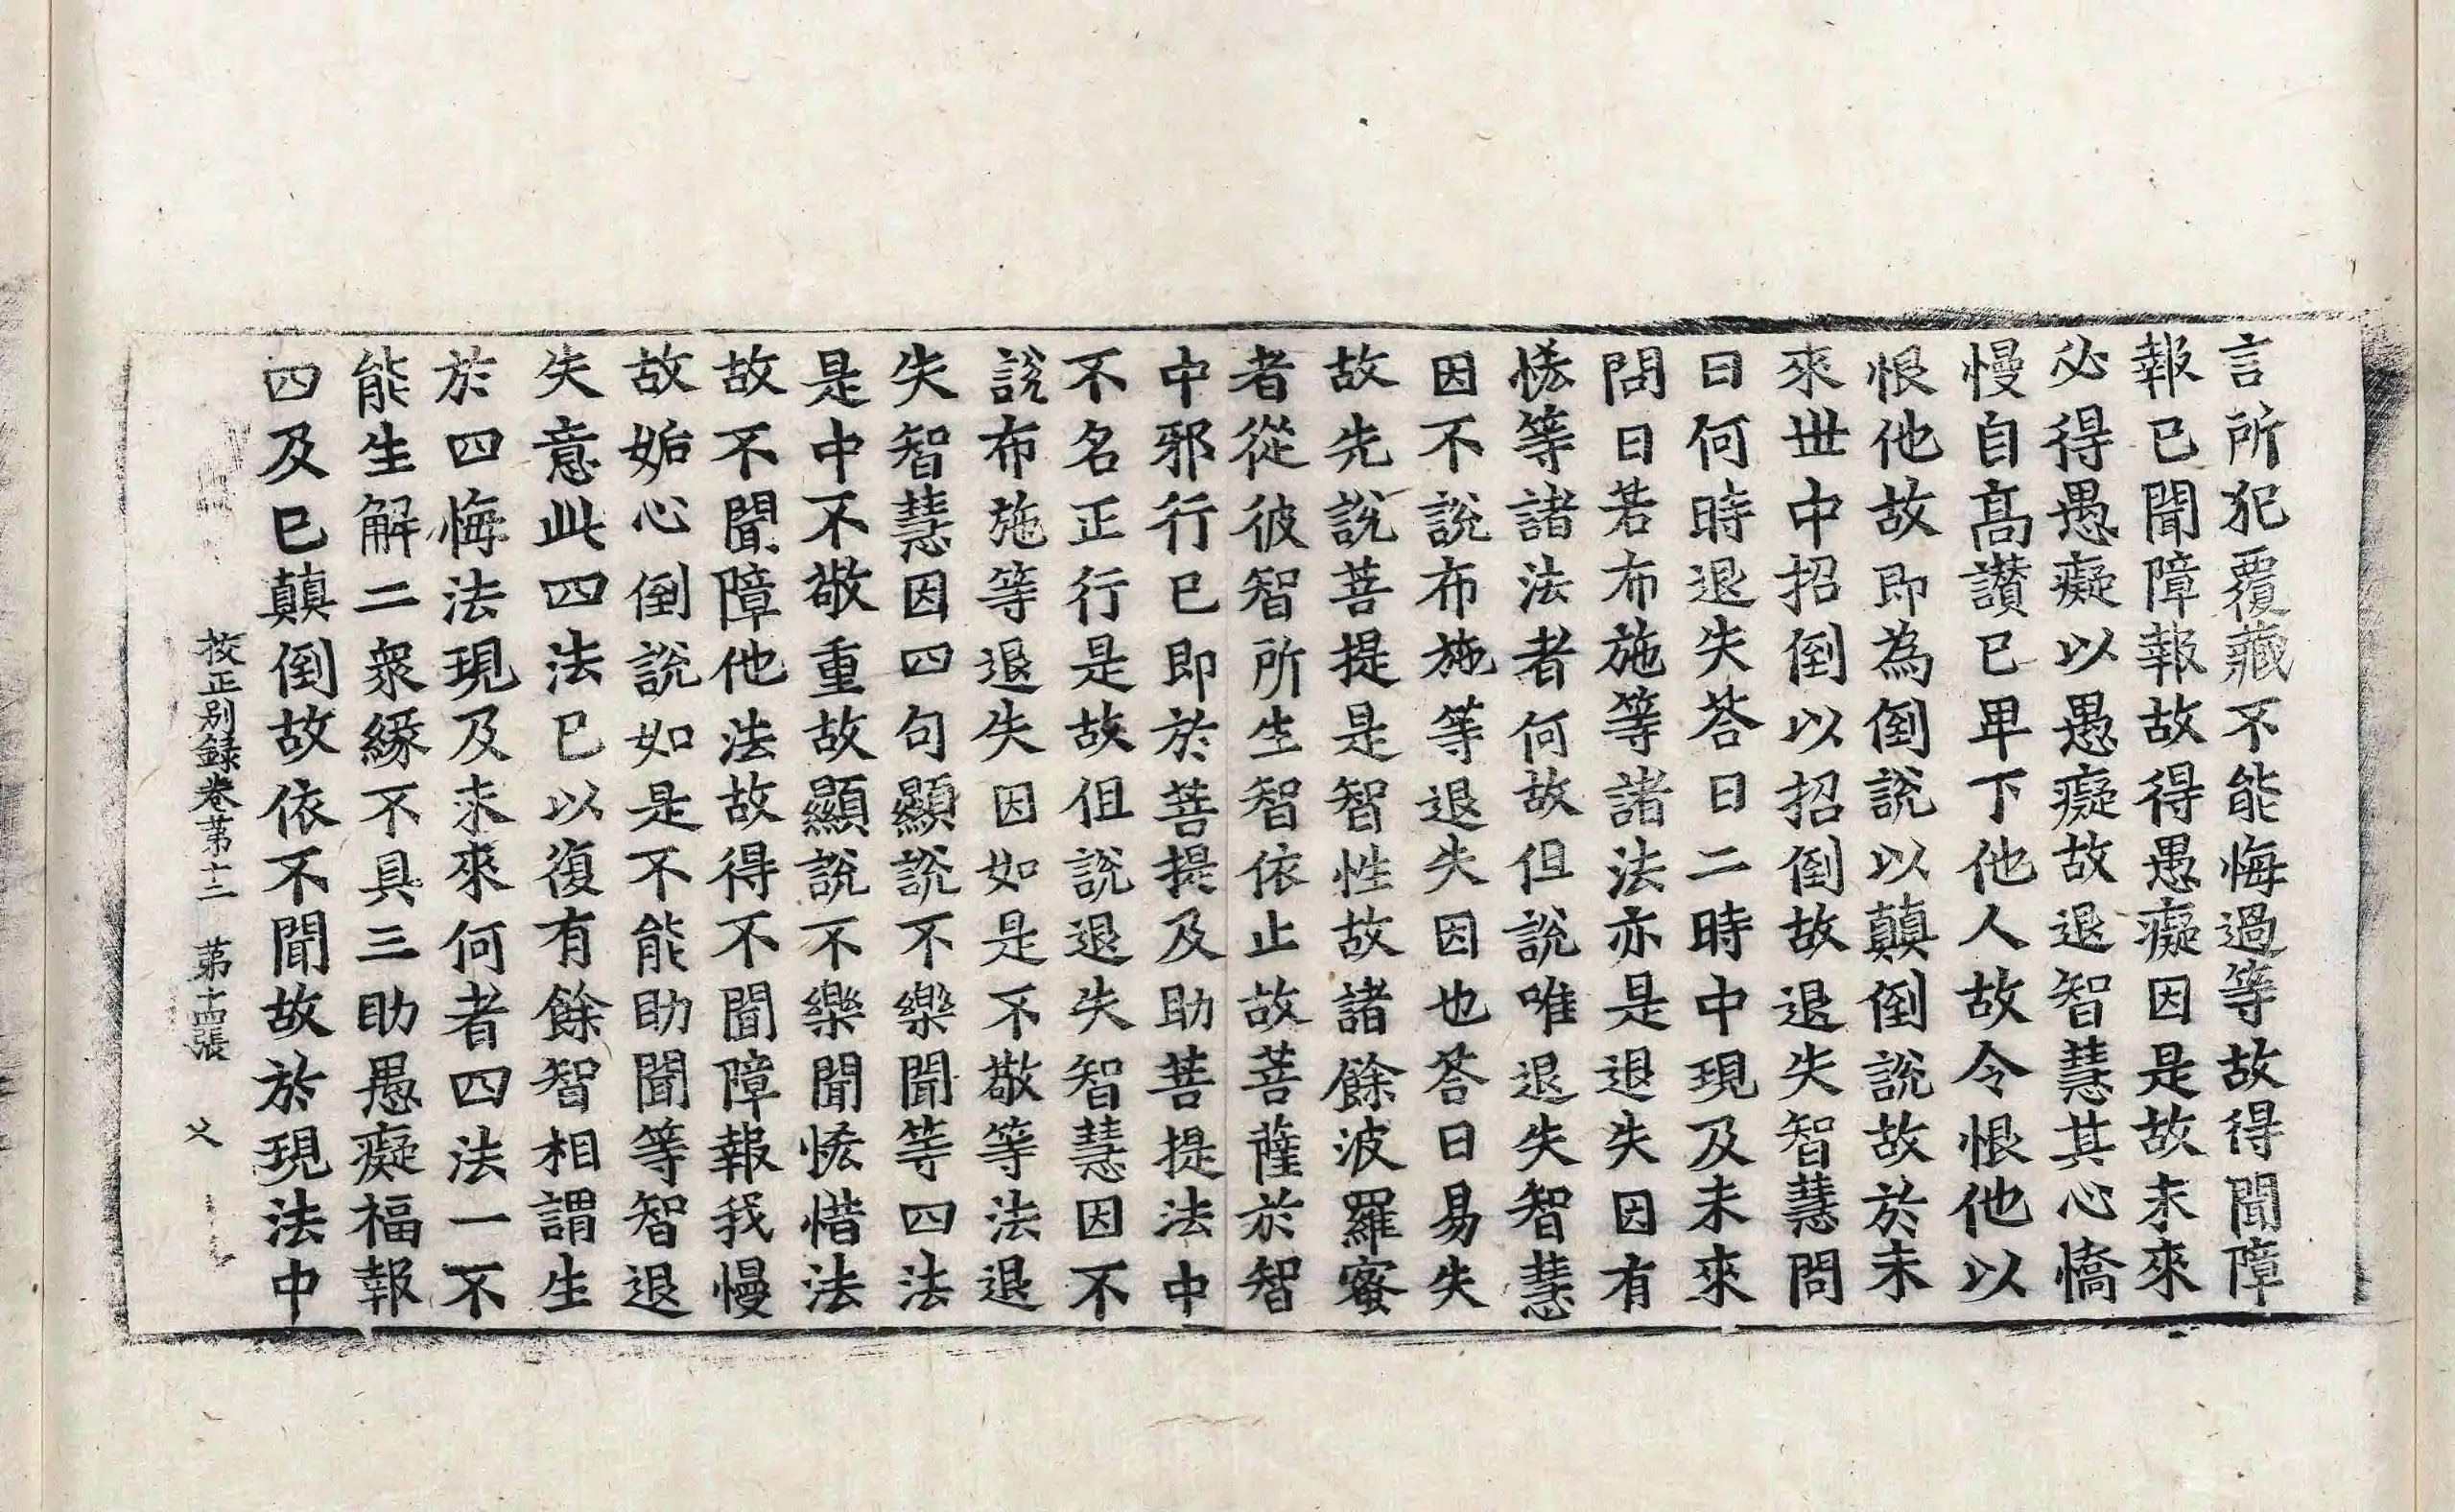 言所犯覆藏不能悔過等故得聞障
報已聞障報故得愚癡因是故未來
必得愚癡以愚癡故退智慧其心憍
慢自髙讃已卑下他人故令恨他以
恨他故即為倒說以顛倒說故於未
來世中招倒以招倒故退失智慧問
曰何時退失荅曰二時中現及未來
問曰若布施等諸法亦是退失因有
恡等諸法者何故但說唯退失智慧
因不說布施等退失因也荅曰易失
故先說菩提是智性故諸餘波羅蜜
者從彼智所生智依止故菩薩於智
中邪行已即於菩提及助菩提法中
不名正行是故但說退失智慧因不
說布施等退失因如是不敬等法退
失智慧因四句顯說不樂聞等四法
是中不敬重故顯說不樂聞恡惜法
故不聞障他法故得不聞障報我慢
故妬心倒說如是不能助聞等智退
失意此四法已以復有餘智相謂生
於四悔法現及未來何者四法一不
能生解二衆緣不具三助愚癡福報
四及已顛倒故依不聞故於現法中
挍正别錄卷第十二　第十四張　父